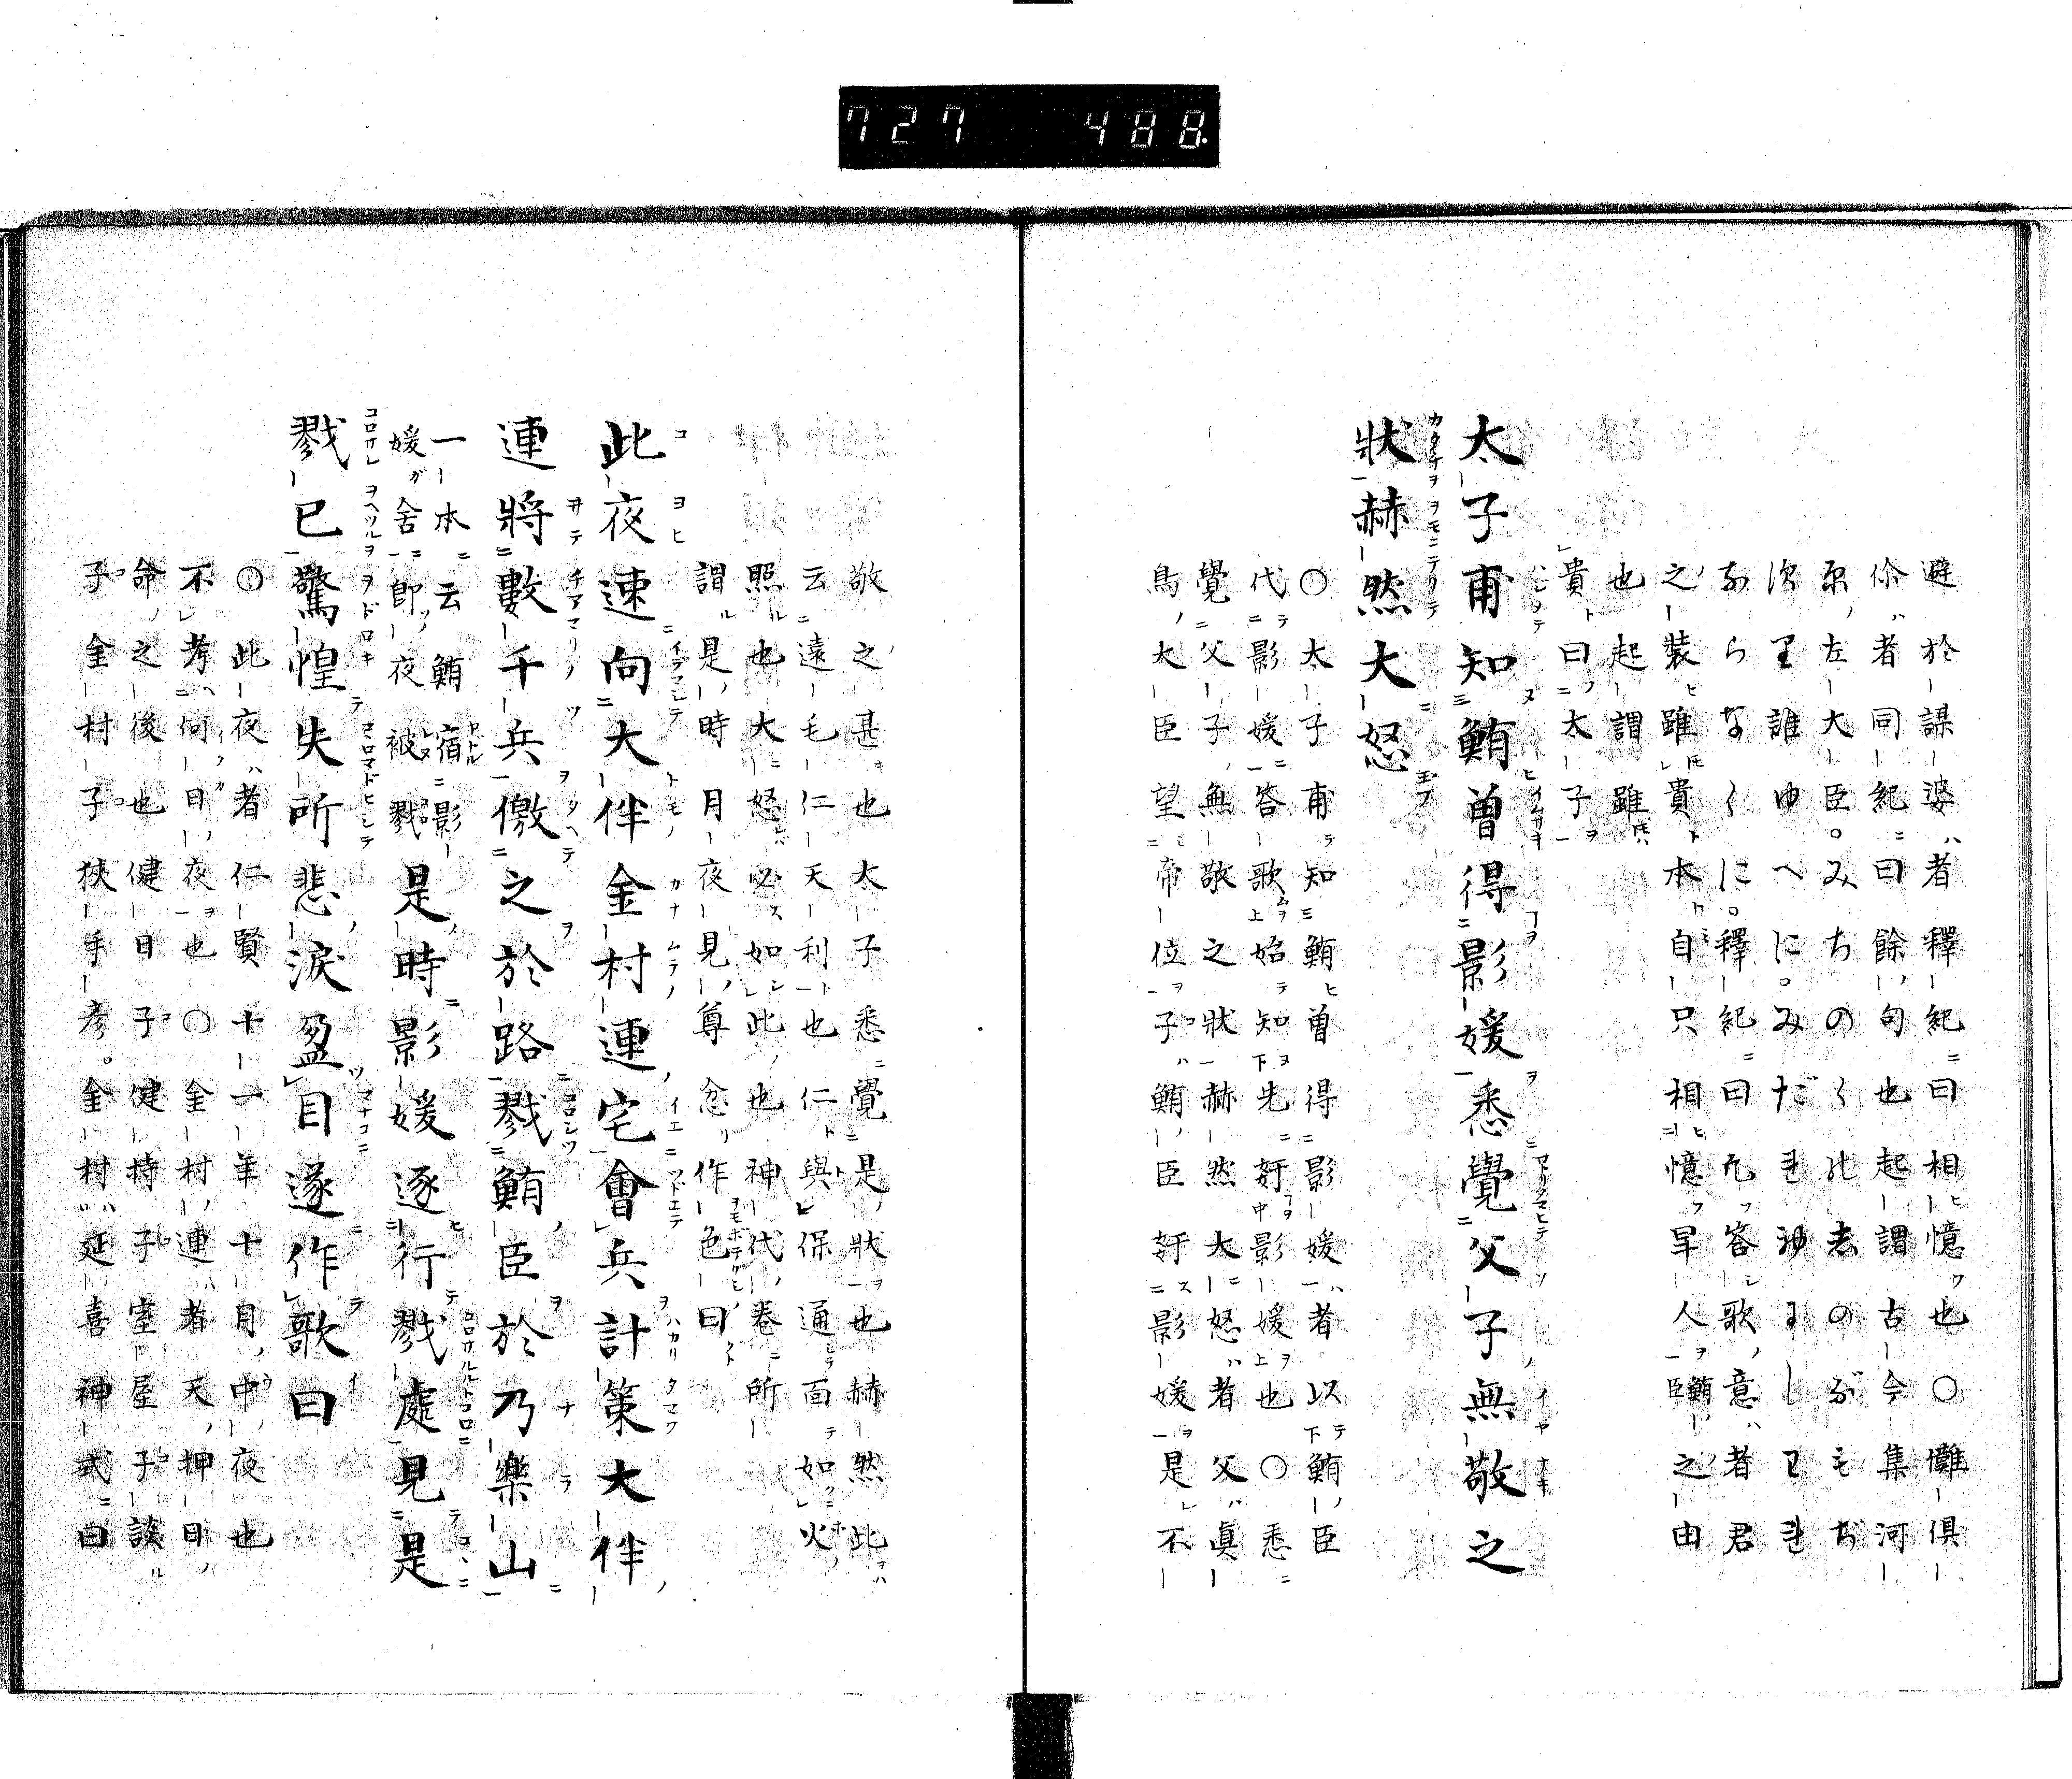 727 488
避於謀婆者釋紀曰相憶也○儺倶
尒者同紀曰餘句也起謂古今集河
原左大臣。みちのくのしのぶもぢ
ずり誰ゆへに。みだれゆにしわれ
ならなくに。釋紀曰凡答歌意者君
之裝雖貴本自只相憶早人鮪臣之由
也起謂雖
貴曰太子
太子甫知鮪曽得影媛悉覺父子無敬之
狀赫然大怒
○太子甫知鮪曽得影媛者以鮪臣
代影媛答歌始知先奸影媛也○悉
覺父子無敬之狀赫然大怒者父眞
鳥大臣望帝位子鮪臣奸影媛是不
敬之甚也太子悉覺是狀也赫然此
云遠毛仁天利也仁與保通面如火
照也大怒必如此也神代卷所
謂是時月夜見尊忿作色曰
此夜速向大伴金村連宅會兵計策大伴
連將數千兵儌之於路戮鮪臣於乃樂山
一本云鮪宿影
媛舎即夜被戮
是時影媛逐行戮處見是
戮已驚惶失所悲涙盈目遂作歌曰
○此夜者仁賢十一年十月中夜也
不考何日夜也○金村連者天押日
命之後也健日子健持子室屋子談
子金村子狹手彦。金村延喜神式曰